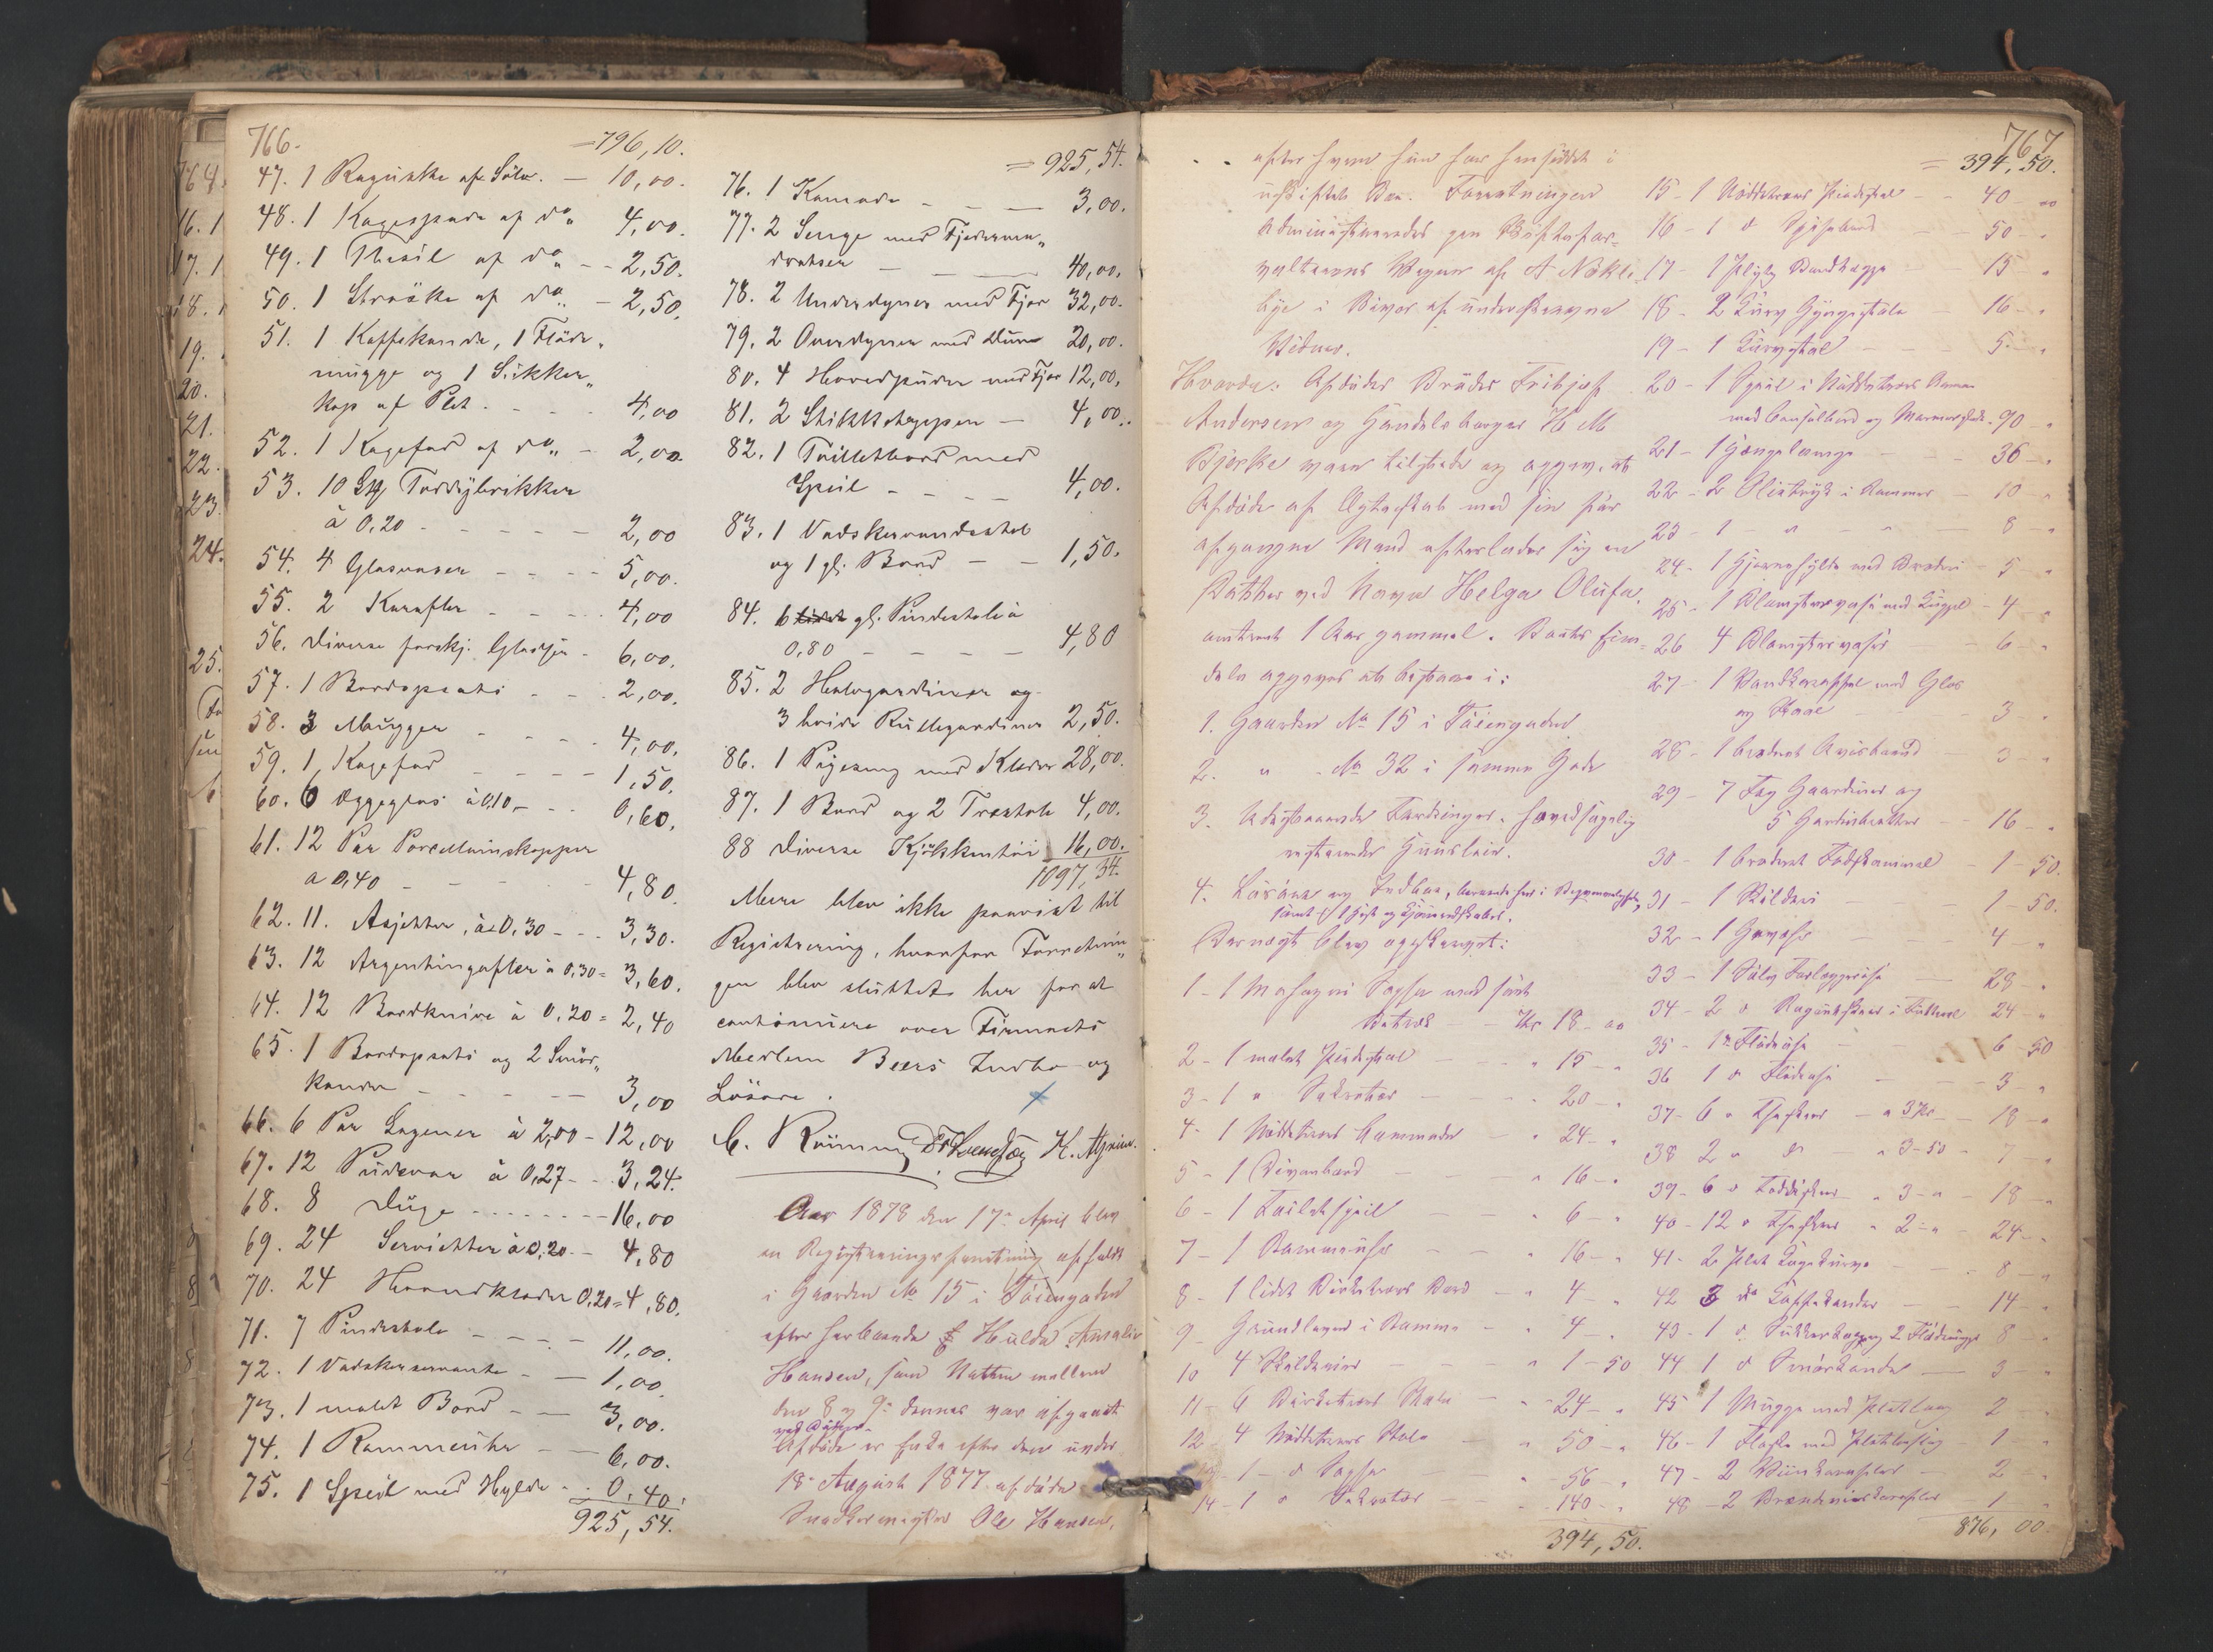 766.
=796,10.
47. 1 Raguske af Sölv. — 10,00.
48. 1 Kagespade af do „ 4,00.
49. 1 Thesil af do „ - - 2,50.
50. 1 Ströske af do „ — 2,50.
51. 1 Kaffekande, 1 Flöde„
mugge og 1 Sukker„
kop af Plet . - - - 4,00
52. 1 Kagefad af do „ - 2,00
53. 10 Stk Toddybrikker
à 0,20 - - - - - 2,00
54. 4 Glasvaser - - - - 5,00.
55. 2 Karafler - - - - 4,00
56. Diverse forskj. Glastöi - 6,00.
57. 1 Bordopsats - - - 2,00.
58. 3 Mugger - - - - 4,00.
59. 1 Kagefad - - - - 1,50.
60. 6 Æggeglas à 0,10 - - - 0,60.
61. 12 Par Porcellainskopper
a 0,40 - - - - - 4,80.
62. 11. Asjetter, à 0,30 - - - 3,30.
63. 12 Argentingafler à 0,30 = 3,60.
64. 12 Bordknive à 0,20 = 2,40
65. 1 Bordopsats og 2 Smör„
kander - - - - - 3,00
66. 6 Par Lagener à 2,00 - 12,00
67. 12 Pudevar à 0,27 - - 3,24.
68. 8 Duge - - - - - - - 16,00
69. 24 Servietter à 0,20. - 4,80
70. 24 Haandklæder 0,20 = 4,80.
71. 7 Pindestole - - - - 11,00.
72. 1 Vadskeservante - — 1,00
73. 1 malet Bord - — 3,00.
74. 1 Kammeruhr — — 6,00.
75. 1 Speil med Hylde - . 0,40.
925,54.
=925,54.
76. 1 Komode - - — 3,00.
77. 2 Senge med Fjederma„
dratser — — — 40,00.
78. 2 Underdyner med Fjær 32,00.
79. 2 Overdyner med Duun 20,00.
80. 4 Hovedpuder med Fjær 12,00.
81. 2 Stikketæpper — 4,00.
82. 1 Toilletbord med
Speil - - - - 4,00.
83. 1 Vadskevandsstel
og 1 gl. Bord — — 1,50.
84. 6 gl. Pindestole à
0,80 - - - - 4,80
85. 2 Halvgardiner og
3 hvide Rullegardiner 2,50.
86. 1 Pigeseng med Klæder 28,00.
87. 1 Bord og 2 Træstole 4,00.
88 Diverse Kjökkentöi 16,00.
1097,34.
Mere blev ikke paavist til
Registrering, hvorfor Forretnin„
gen blev sluttet her for at
continuere over Firmaets
Medlem Beers Indbo og
Lösöre.
Aar 1878 den 17de April blev
en Registreringsforretning afholdt
i Gaarden No 15 i Töiengaden
efter herboende E Hulda Amalie
Hansen, som Natten mellem
den 8 og 9de dennes var afgaaet
ved Döden.
Afdöde er Enke efter den under
18de August 1877 afdöde
Snedkermester Ole Hansen,
767
efter hvem hun har hensiddet i
uskiftet Bo. Forretningen
administreredes paa Skifterfor=
valterens Vegne af A Nökle=
bye i Bivær af undertegnede
Vidner.
Hvorda: Afdödes Broder Fritjof
Andersen og Handelsborger H M
Bjerke vare tilstede og opgav, at
Afdöde af Ægteskab med sin för
afgangne Mand efterlader sig en
Datter ved Navn Helga Olufa,
omtrent 1 Aar gammel. Boets Eien=
dele opgaves at bestaa i:
1. Gaarden No 15 i Töiengaden
2. " . No 32 i samme Gade
3. Udestaaende Fordringer. hovedsagelig
resterende Huusleie.
4. Lösöre og Indbo,
samt 1 Hest og Kjöreredskaber.
Dernæst blev opskrevet:
1 - 1 Mahogni Sopha med sort
Betræk - - Kr 18 - 00
2 - 1 malet Pindestol - - „ 15 - „
3 - 1 „ Sekretær - - „ 20 - „
4 - 1 Nöddetræs Commode - „ 24 - „
5 - 1 Divanbord - - „ 16 - „
6 - 1 Toiletspeil - - „ 6 - „
7 - 1 Kammeruhr - - „ 16 - „
8 - 1 lidet Birketræs Bord - „ 4 - „
9 - Grundloven i Ramme - „ 4 - „
10 4 Skilderier - - „ 1 - 50
11 - 6 Birketræs Stole - „ 24 - „
12 4 Nöddetræs Stole - „ 50 - „
13 1 - d Sopha - „ 56 - „
14 - 1 „ Sekretær - 140 - „
394,50.
= 394,50.
15 - 1 Nöddetræes Pindestol - - 40 - 00
16 - 1 d Spisebord - - 50 - „
17 - 1 Plyds Bordtæppe - 15 „
18 - 2 Kurv Gyngestole - 16 - „
19 - 1 Kurvstol - - 5 - „
20 - 1 Speil i Nöddetræes Ramme
med Consolbord og Marmorplade. 90 - „
21 - 1 Hængelampe - - 36 - „
22 - 2 Olietryk i Rammer - 10 - „
23 - 1 „ - „ - - 8 „
24 - 1 Hjørnehylde med Broderi - 5 - „
25 - 1 Blomstervase med Kuppel - 4 - „
26 4 Blomstervaser - - 6 - „
27 - 1 Vandkaraffel med Glas
og Skaal - - 3 - „
28 - 1 broderet Avisbaand - 3 „
29 - 7 Fag Gardiner og
5 Gardinbrætter - 16 - „
30 - 1 broderet Fodskammel - 1 - 50.
31 - 1 Billede - - 1 - 50.
32 - 1 Gevær - - 4 „
33 - 1 Sölv Forlæggerske - 28 - „
34 - 2 d Raguskeer i Futteral 24 - „
35 - 1 „ Flödeske - 6 - 50
36 1 d Flödeske - - 3 - „
37 - 6 „ Theskeer - a 3 Kr - 18 - „
38 2 „ d - a 3 - 50 - 7 - „
39 - 6 d Toddyskeer - „ 3 - „ - 18 - „
40 - 12 d Theskeer „ 2 - „ - 24 - „
41 - 2 Plet Kagekurve - - 8 - „
42 3 do Kaffekander - - 14 - „
43 - 1 d. Sukkerkop og 2 Flödemugger 8 „
44 1 d Smörkande - 3 „
45 1 Mugge med Pletlaag 2 „
46 - 1 Flaske med Pletbeslag - 1 - „
47 - 2 Viinkarafler - 2 „
48 - 2 Brændeviinskarafler - 1 - „
876,00.